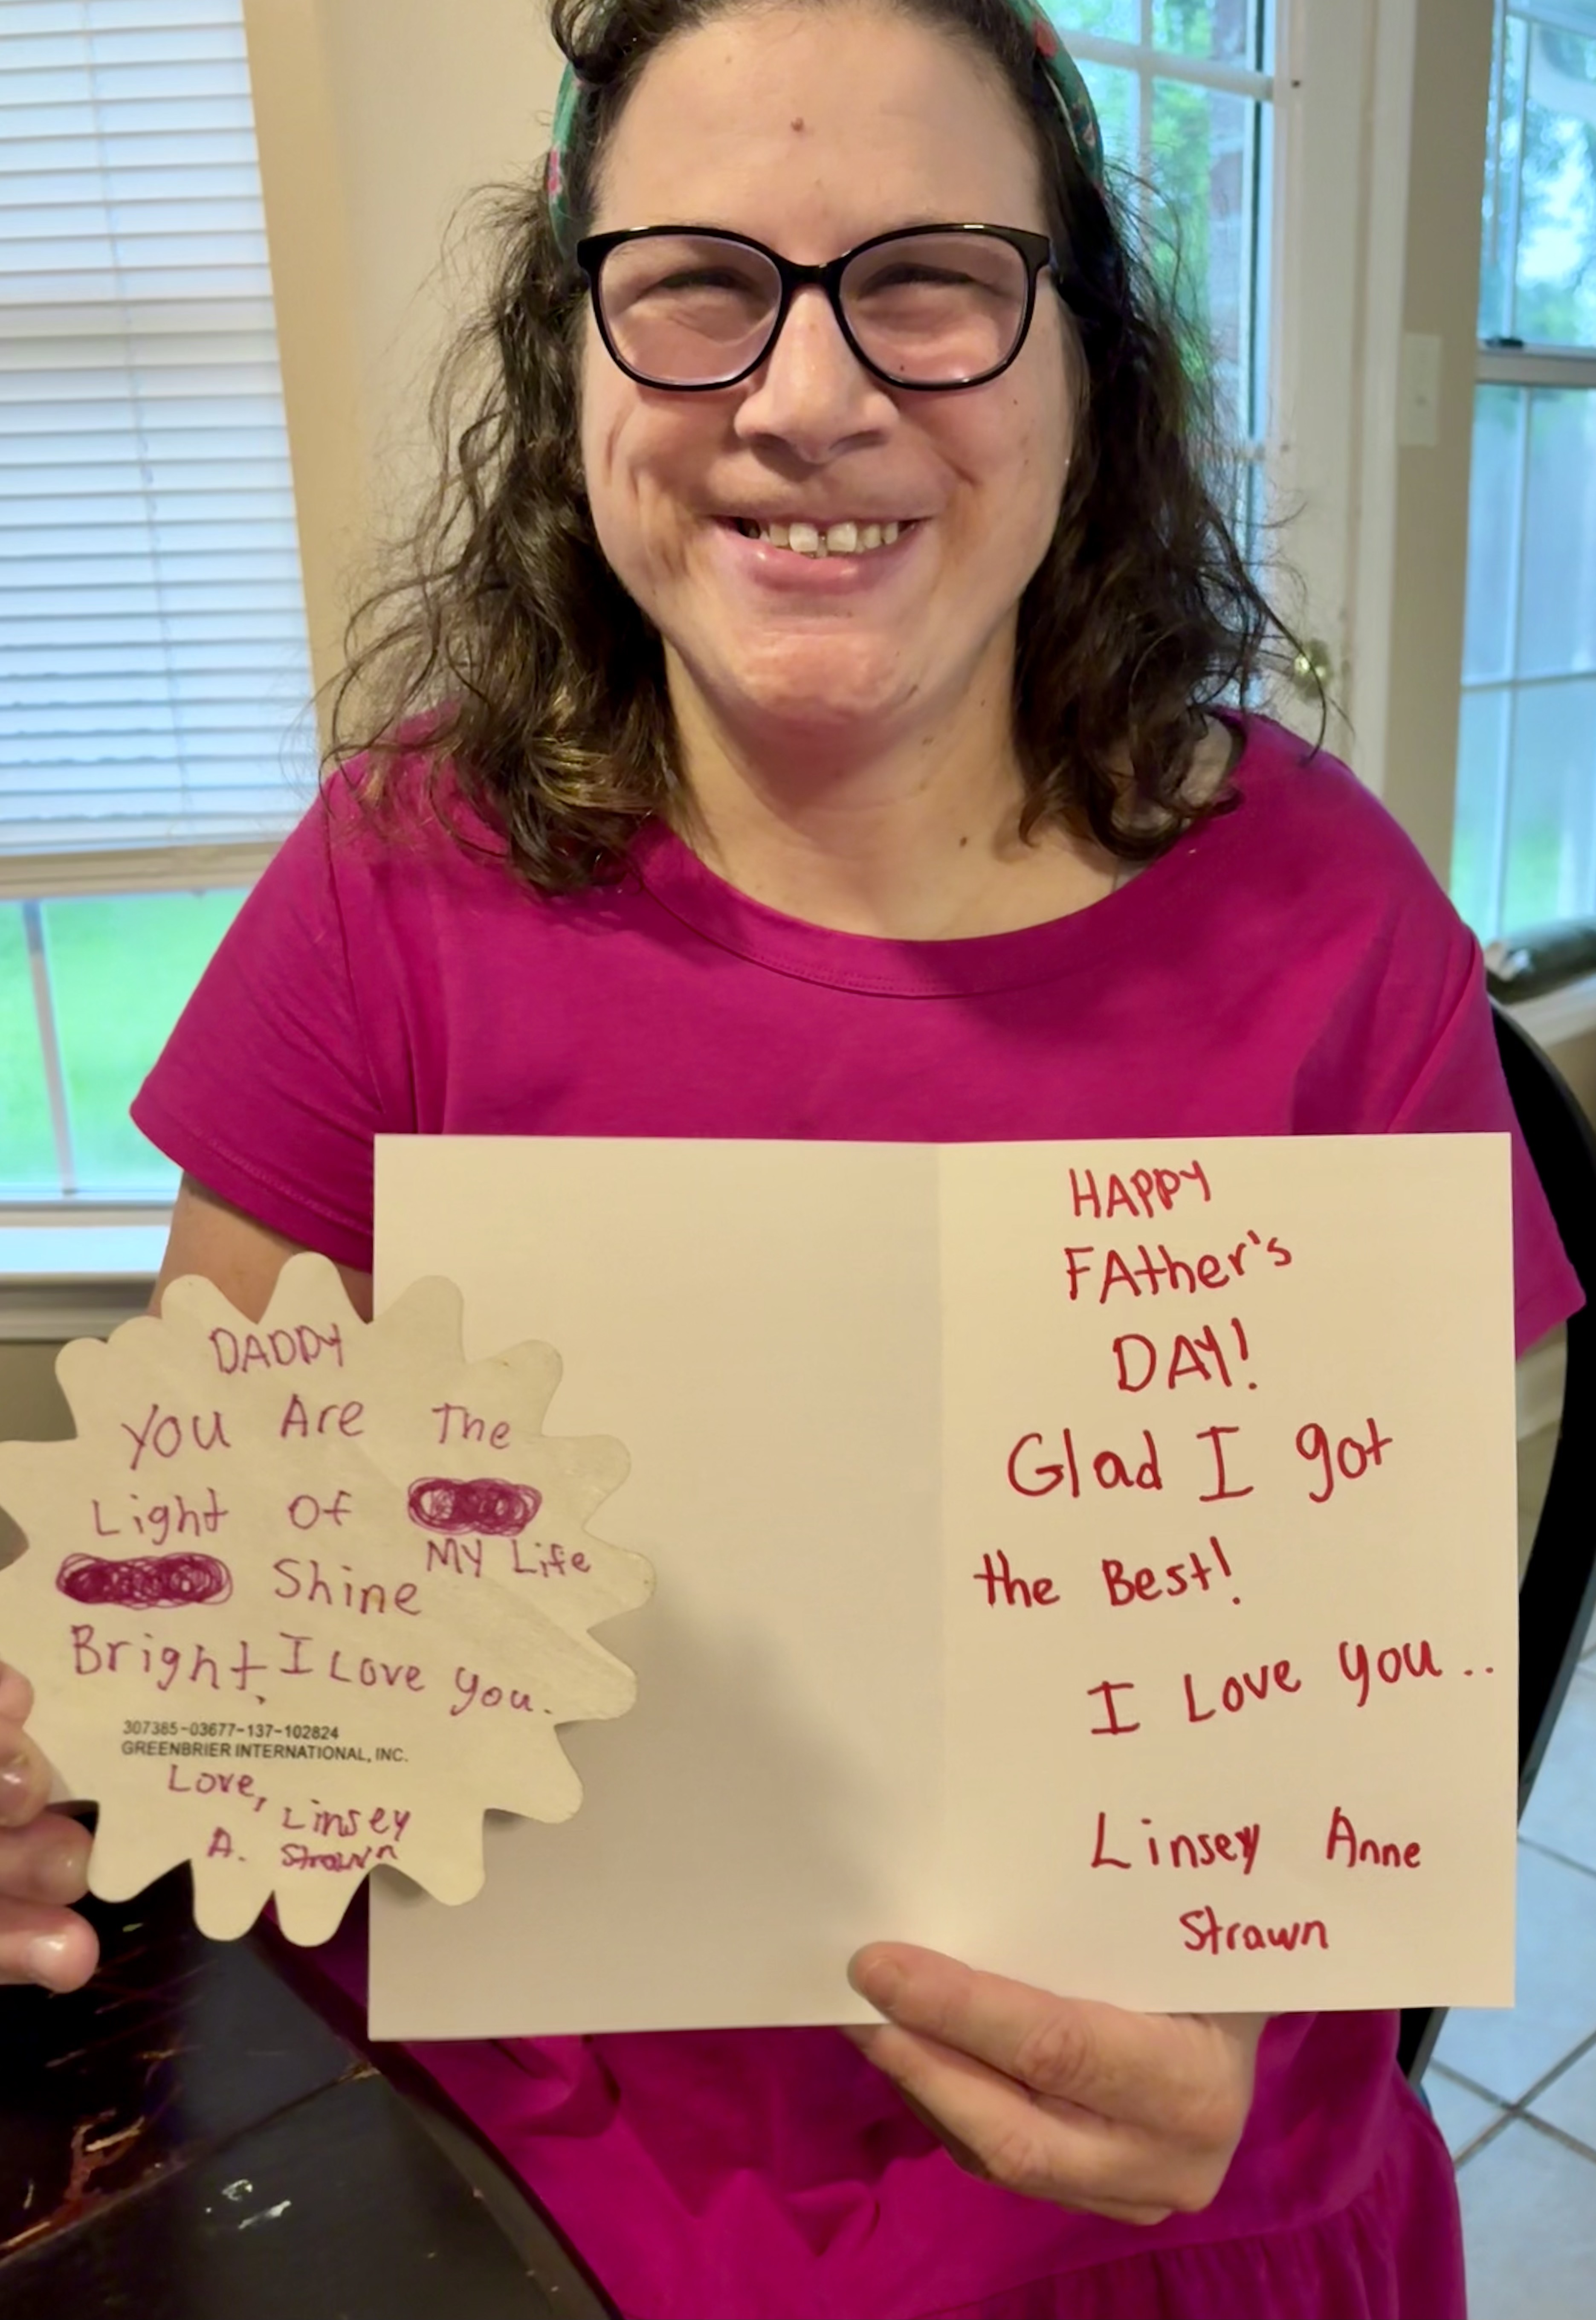 DADDY
You Are The
Light Of
My Life
Shine
Bright, I Love you.
307385-03677-137-102824
GREENBRIER INTERNATIONAL, INC.
Love, Linsey
A. Strawn
HAPPY
FAther's
DAY!
Glad I got
the Best!
I Love you..
Linsey Anne
Strawn